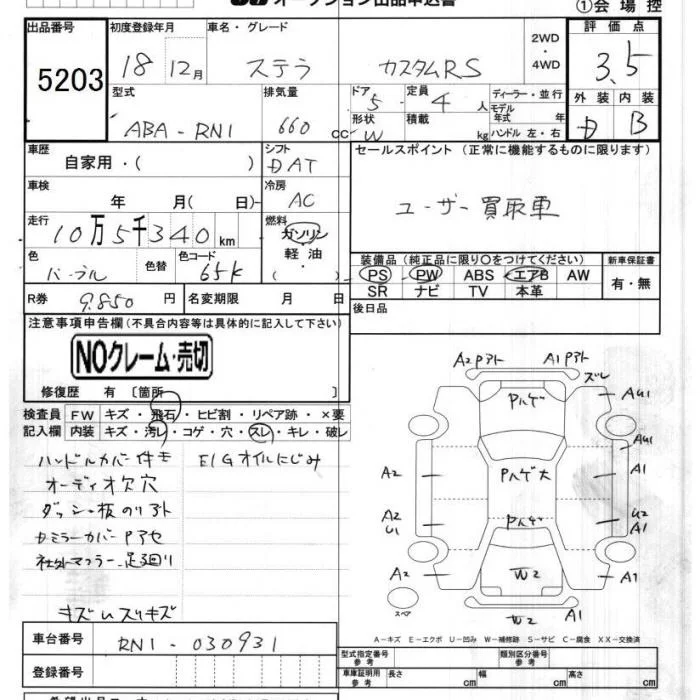 オークション出品申込書
①会場控
出品番号 初度登録年月 車名・グレード 2WD・4WD 評価点
5203 18 12月 ステラ カスタムRS 3.5
型式 排気量 ドア 5 定員 4 人 ディーラー・並行 外装 内装
ABA-RN1 660 cc 形状 W 積載 kg モデル年式 年 ハンドル 左・右 D B
車歴 シフト セールスポイント (正常に機能するものに限ります)
自家用・( ) DAT
車検 冷房
年 月( 日) AC ユーザー買取車
走行 燃料
10万5千340km ガソリン・軽油・( )
色 色替 色コード 装備品 (純正品に限り○をつけてください) 新車保証書
パープル 65K PS PW ABS エアB AW 有・無
SR ナビ TV 本革
R券 9.850 円 名変期限 月 日 後日品
注意事項申告欄(不具合内容等は具体的に記入して下さい)
NOクレーム・売切
修復歴 有 [箇所 ]
検査員 FW キズ・飛石・ヒビ割・リペア跡・×要
記入欄 内装 キズ・汚レ・コゲ・穴・スレ・キレ・破レ
ハンドルカバー付キ EIGオイルにじみ
オーディオ欠穴
ダッシュ板のリアト
社外マフラー 足廻り
A2 Pアト A1 Pアト
ズレ
Pハゲ AU1
AU1
A2 Pハゲ大 A1
A2 U1 Pハゲ U2 A1
A2 W2 A1
スペア W2 A1
A-キズ E-エクボ U-凹み W-補修跡 S-サビ C-腐食 XX-交換済
車台番号 RN1-030931
登録番号
型式指定番号 参考 類別区分番号 参考
車庫証明用 参考 長さ cm 幅 cm 高さ cm